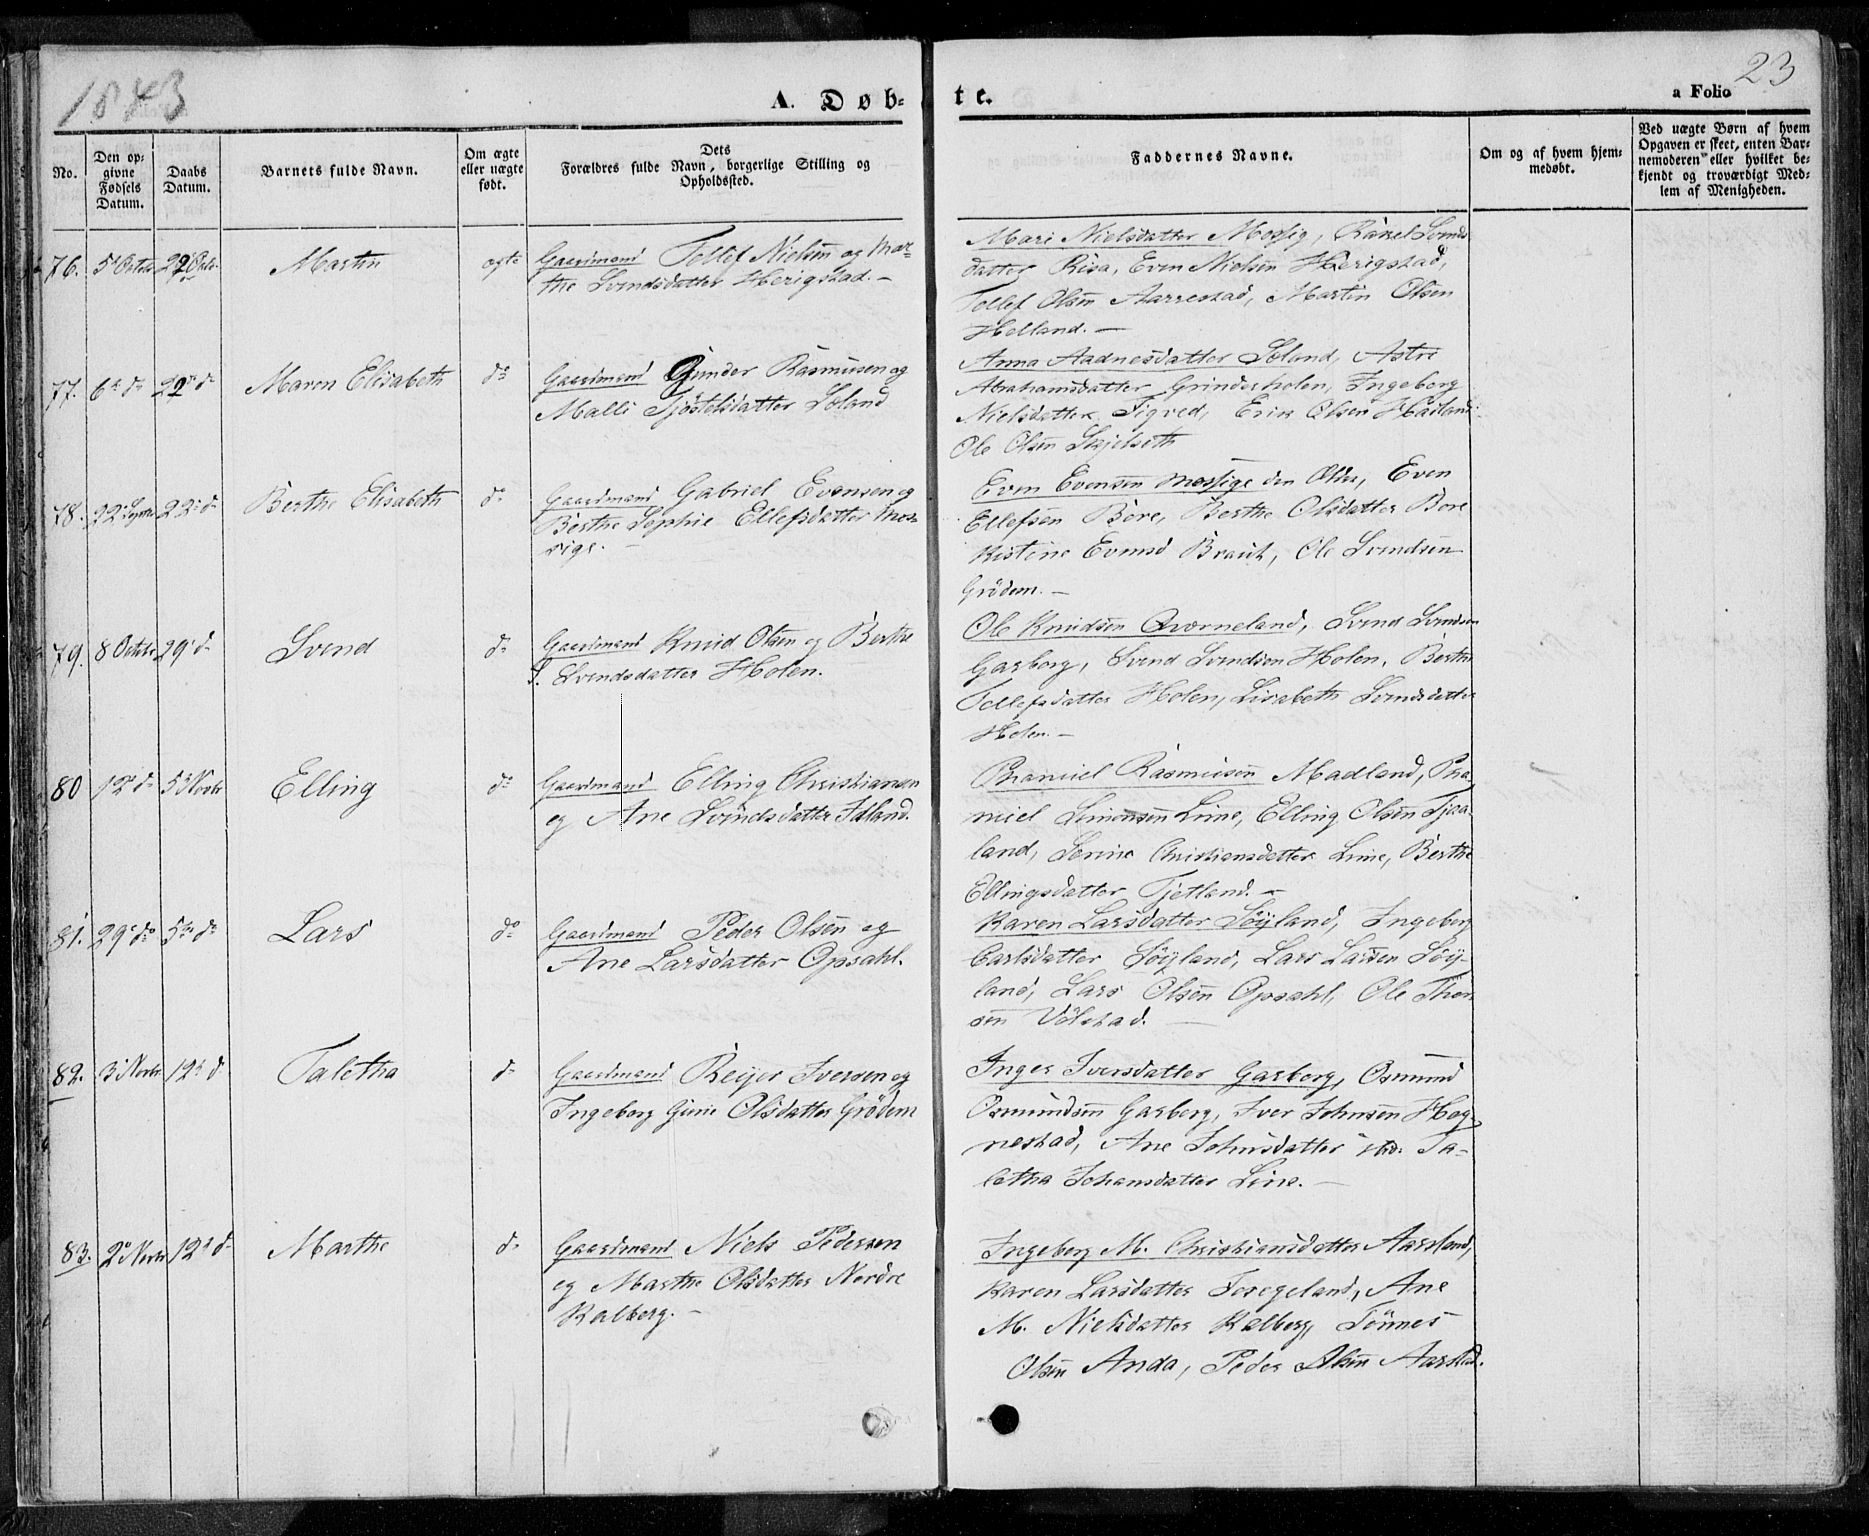 1843
A. Døb-
te.
a Folio
23
No.
Den op-
givne
Fødsels
Datum.
Daabs
Datum.
Barnets fulde Navn.
Om ægte
eller uægte
født.
Dets
Forældres fulde Navn, borgerlige Stilling og
Opholdssted.
Faddernes Navne.
Om og af hvem hjem-
medøbt.
Ved uægte Børn af hvem
Opgaven er skeet, enten Bar-
nemoderen eller hvilket be-
kjendt og troværdigt Med-
lem af Menigheden.
76. 5t Octbr 22 Octbr Martin ægte Gaardmand Tollef Nielsen og Mar-
the Svendsdatter Herigstad. -
Mari Nielsdatter Mossig, Rakel Svends
datter Risa, Even Nielsen Herigstad,
Tollef Olsen Aarrestad, Martin Olsen
Helland. -
77. 6te do 22de do Maren Elisabeth do Gaardmand Gunder Rasmusen og
Malli Tjöstelsdatter Soland
Anna Aadnesdatter Soland, Astri
Abrahamsdatter Grinderholen, Ingeborg
Nielsdatter Tigved, Erik Olsen Haaland
Ole Olsen Skjelseth
78. 22 Septbr 22de do Berthe Elisabeth do Gaardmand Gabriel Evensen og
Berthe Sophie Ellefsdatter Mos-
sige. -
Even Evensen Mossige den Ældre, Even
Ellefsen Bore, Berthe Olsdatter Bore
Kistine Evensd Braut, Ole Svendsen
Grödem. -
79. 8 Octbr 29 do Svend do Gaardmand Knud Olsen og Berthe
S. Svendsdatter Holen.
Ole Knudsen Qværneland, Svend Svendsen
Garborg, Svend Svendsen Holen, Berthe
Tollefsdatter Holen, Lisabeth Svendsdatter
Holen. -
80 12 do 5 Novbr Elling do Gaardmand Elling Christiansen
og Ane Svendsdatter Idland.
Thamiel Rasmusen Madland, Tha-
miel Simonsen Lime, Elling Olsen Tjaa-
land, Serine Christiansdatter Lime, Berthe
Ellingsdatter Tjetland. -
81. 29 do 5te do Lars do Gaardmand Peder Olsen og
Ane Larsdatter Opsahl.
Karen Larsdatter Söyland, Ingeborg
Carlsdatter Söyland, Lars Larsen Söy-
land, Lars Olsen Opsahl, Ole Thor
sen Völstad. -
82. 3 Novbr 12 d Taletha do Gaardmand Reijer Iversen og
Ingeborg Gurie Olsdatter Grödem
Inger Iversdatter Garborg, Osmund
Osmundsen Garborg, Iver Johnsen Hog-
nestad, Ane Johnsdatter ibid. Ta-
letha Johansdatter Line. -
83. 2 Novbr 12 d Marthe do Gaardmand Niels Pedersen
og Marthe Olsdatter Nordre
Kalberg. -
Ingeborg M. Christiansdatter Aarsland,
Karen Larsdatter Foregeland, Ane
M. Nielsdatter Kalberg, Tönnes
Olsen Anda, Peder Olsen Aarstad.